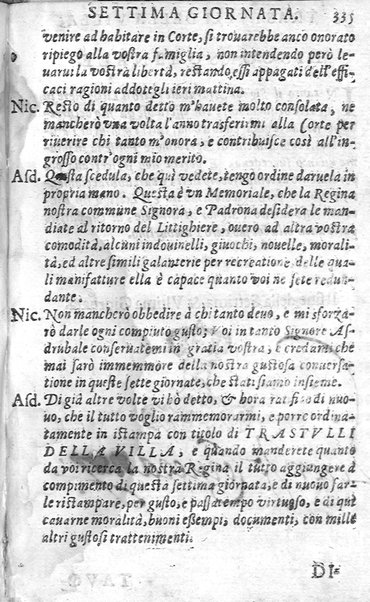 SETTIMA GIORNATA. 335
venire ad habitare in Corte, si trouarebbe anco onorato
ripiego alla vostra famiglia, non intendendo però le-
uarui la vostrà libertà, restando essi appagati dell'effi-
caci ragioni addotegli ieri mattina.
Nic. Resto di quanto detto m'hauete molto consolata, ne
mancherò vna volta l'anno trasferirmi alla Corte per
riuerire chi tanto m'onora, e contribuisce così all'in-
grosso contr'ogni mio merito.
Asd. Questa scedula, che quì vedete, tengo ordine daruela in
propria mano. Questa è vn Memoriale, che la Regina
nostra commune Signora, e Padrona desidera le man-
diate al ritorno del Littighiere, ouero ad altra vostra
comodità, alcuni indouinelli, giuochi, nouelle, morali-
tà, ed altre simili galanterie per recreatione delle qua-
li manifatture ella è capace quanto voi ne sete redun-
dante.
Nic. Non mancherò obbedire à chi tanto deuo, e mi sforza-
rò darle ogni compiuto gusto; Voi in tanto Signore As-
drubale conseruatemi in gratia vostra, e credami che
mai sarò immemmore della nostra gustosa conuersa-
tione in queste sette giornate, che stati siamo insieme.
Asd. Di già altre volte vi hò detto, & hora rat fico di nuo-
uo, che il tutto voglio rammemorarmi, e porre ordina-
tamente in istampa con titolo di TRASTVLLI
DELLA VILLA, e quando manderete quanto
da voi ricerca la nostra Regina il tutto aggiungere à
compimento di questa settima giornata, e di nuouo far-
le ristampare, per gusto, e passatempo virtuoso, e di quì
cauarne moralità, buoni essempi, documenti, con mille
altri gustosi trattenimenti.
DI-